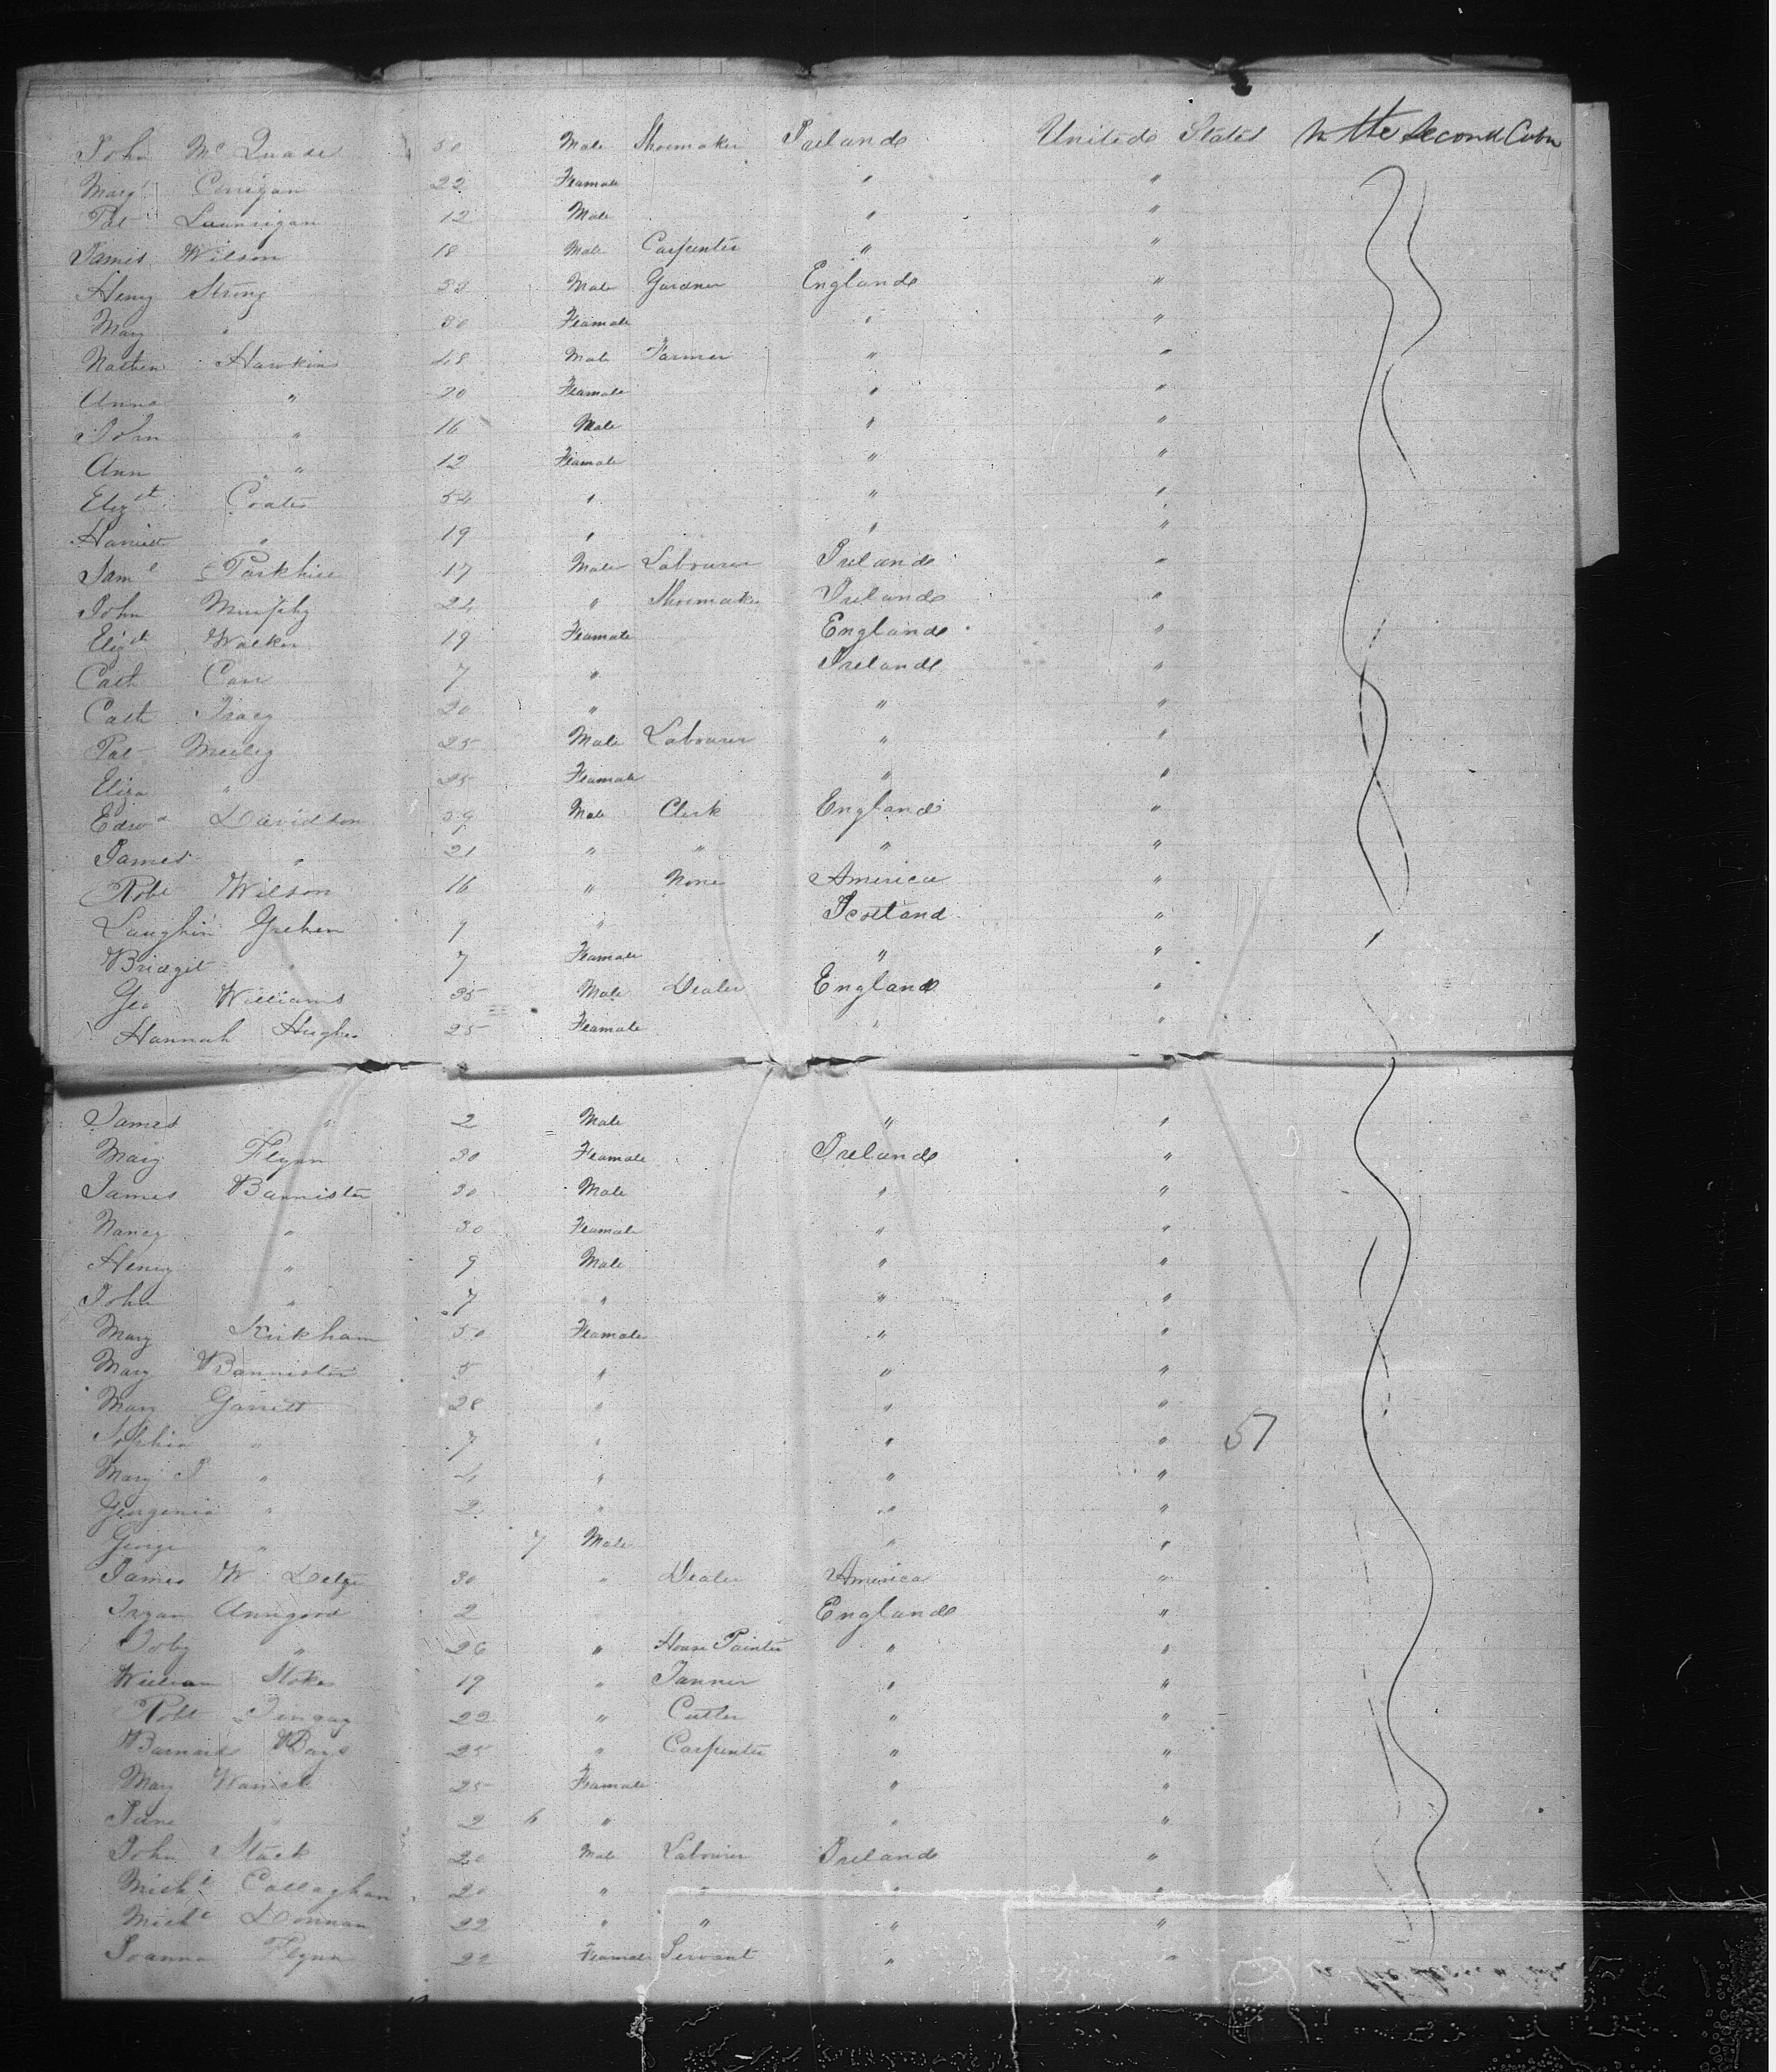 John Mc Quade 50 Male Shoemaker Irelande Unitede States In the Second Cabn
Margt Corrigan 22 Feamale " "
Pat Launigan 12 Male " "
James Wilson 18 Male Carpenter " "
Henry Strong 32 Male Gardner Englande "
Mary " 30 Feamale " "
Nathen Hawkins 48 Male Farmer " "
Anna " 20 Feamale " "
John " 16 Male " "
Ann " 12 Feamale " "
Elizth Coates 54 " " "
Harriett " 19 " " "
Saml Parkhill 17 Male Labourer Irelande "
John Murphy 24 " Shoemaker Irelande "
Elizth Walker 19 Feamale Englande "
Cath Carr 7 " Irelande "
Cath Tracy 20 " " "
Pat 25 Male Labourer " "
Eliza " 25 Feamale " "
Edwd Davidson 59 Male Clerk England "
James " 21 " " " "
Robt Wilson 16 " None America "
Laughlin 9 " Scotland "
Bridgit " 7 Feamale " "
Geo Williams 35 Male Dealer England "
Hannah Hughes 25 Feamale " "
James " 2 Male " "
Mary Flynn 30 Feamale Irelande "
James Bannister 30 Male " "
Nancy " 30 Feamale " "
Henry " 9 Male " "
John " 7 " " "
Mary Kirkham 50 Feamale " "
Mary Bannister 5 " " "
Mary Garrett 28 " " "
Sophia " 7 " " " 57
Mary " 4 " " "
Georgenia " 2 " " "
George " 7 Male " "
James W 30 " Dealer America "
Annigood 2 Englande "
" 26 " House Painter " "
William Stokes 19 " Tanner " "
Robt 22 " Cutler " "
Barnard Bays 25 " Carpenter " "
Mary 25 Feamale " "
Jane " 2 6 " " "
John Stack 20 Male Labourer Irelande "
Michl Callaghan 20 " " " "
Michl Donnan 22 " " " "
Joanna Flynn 22 Feamale Servant " "